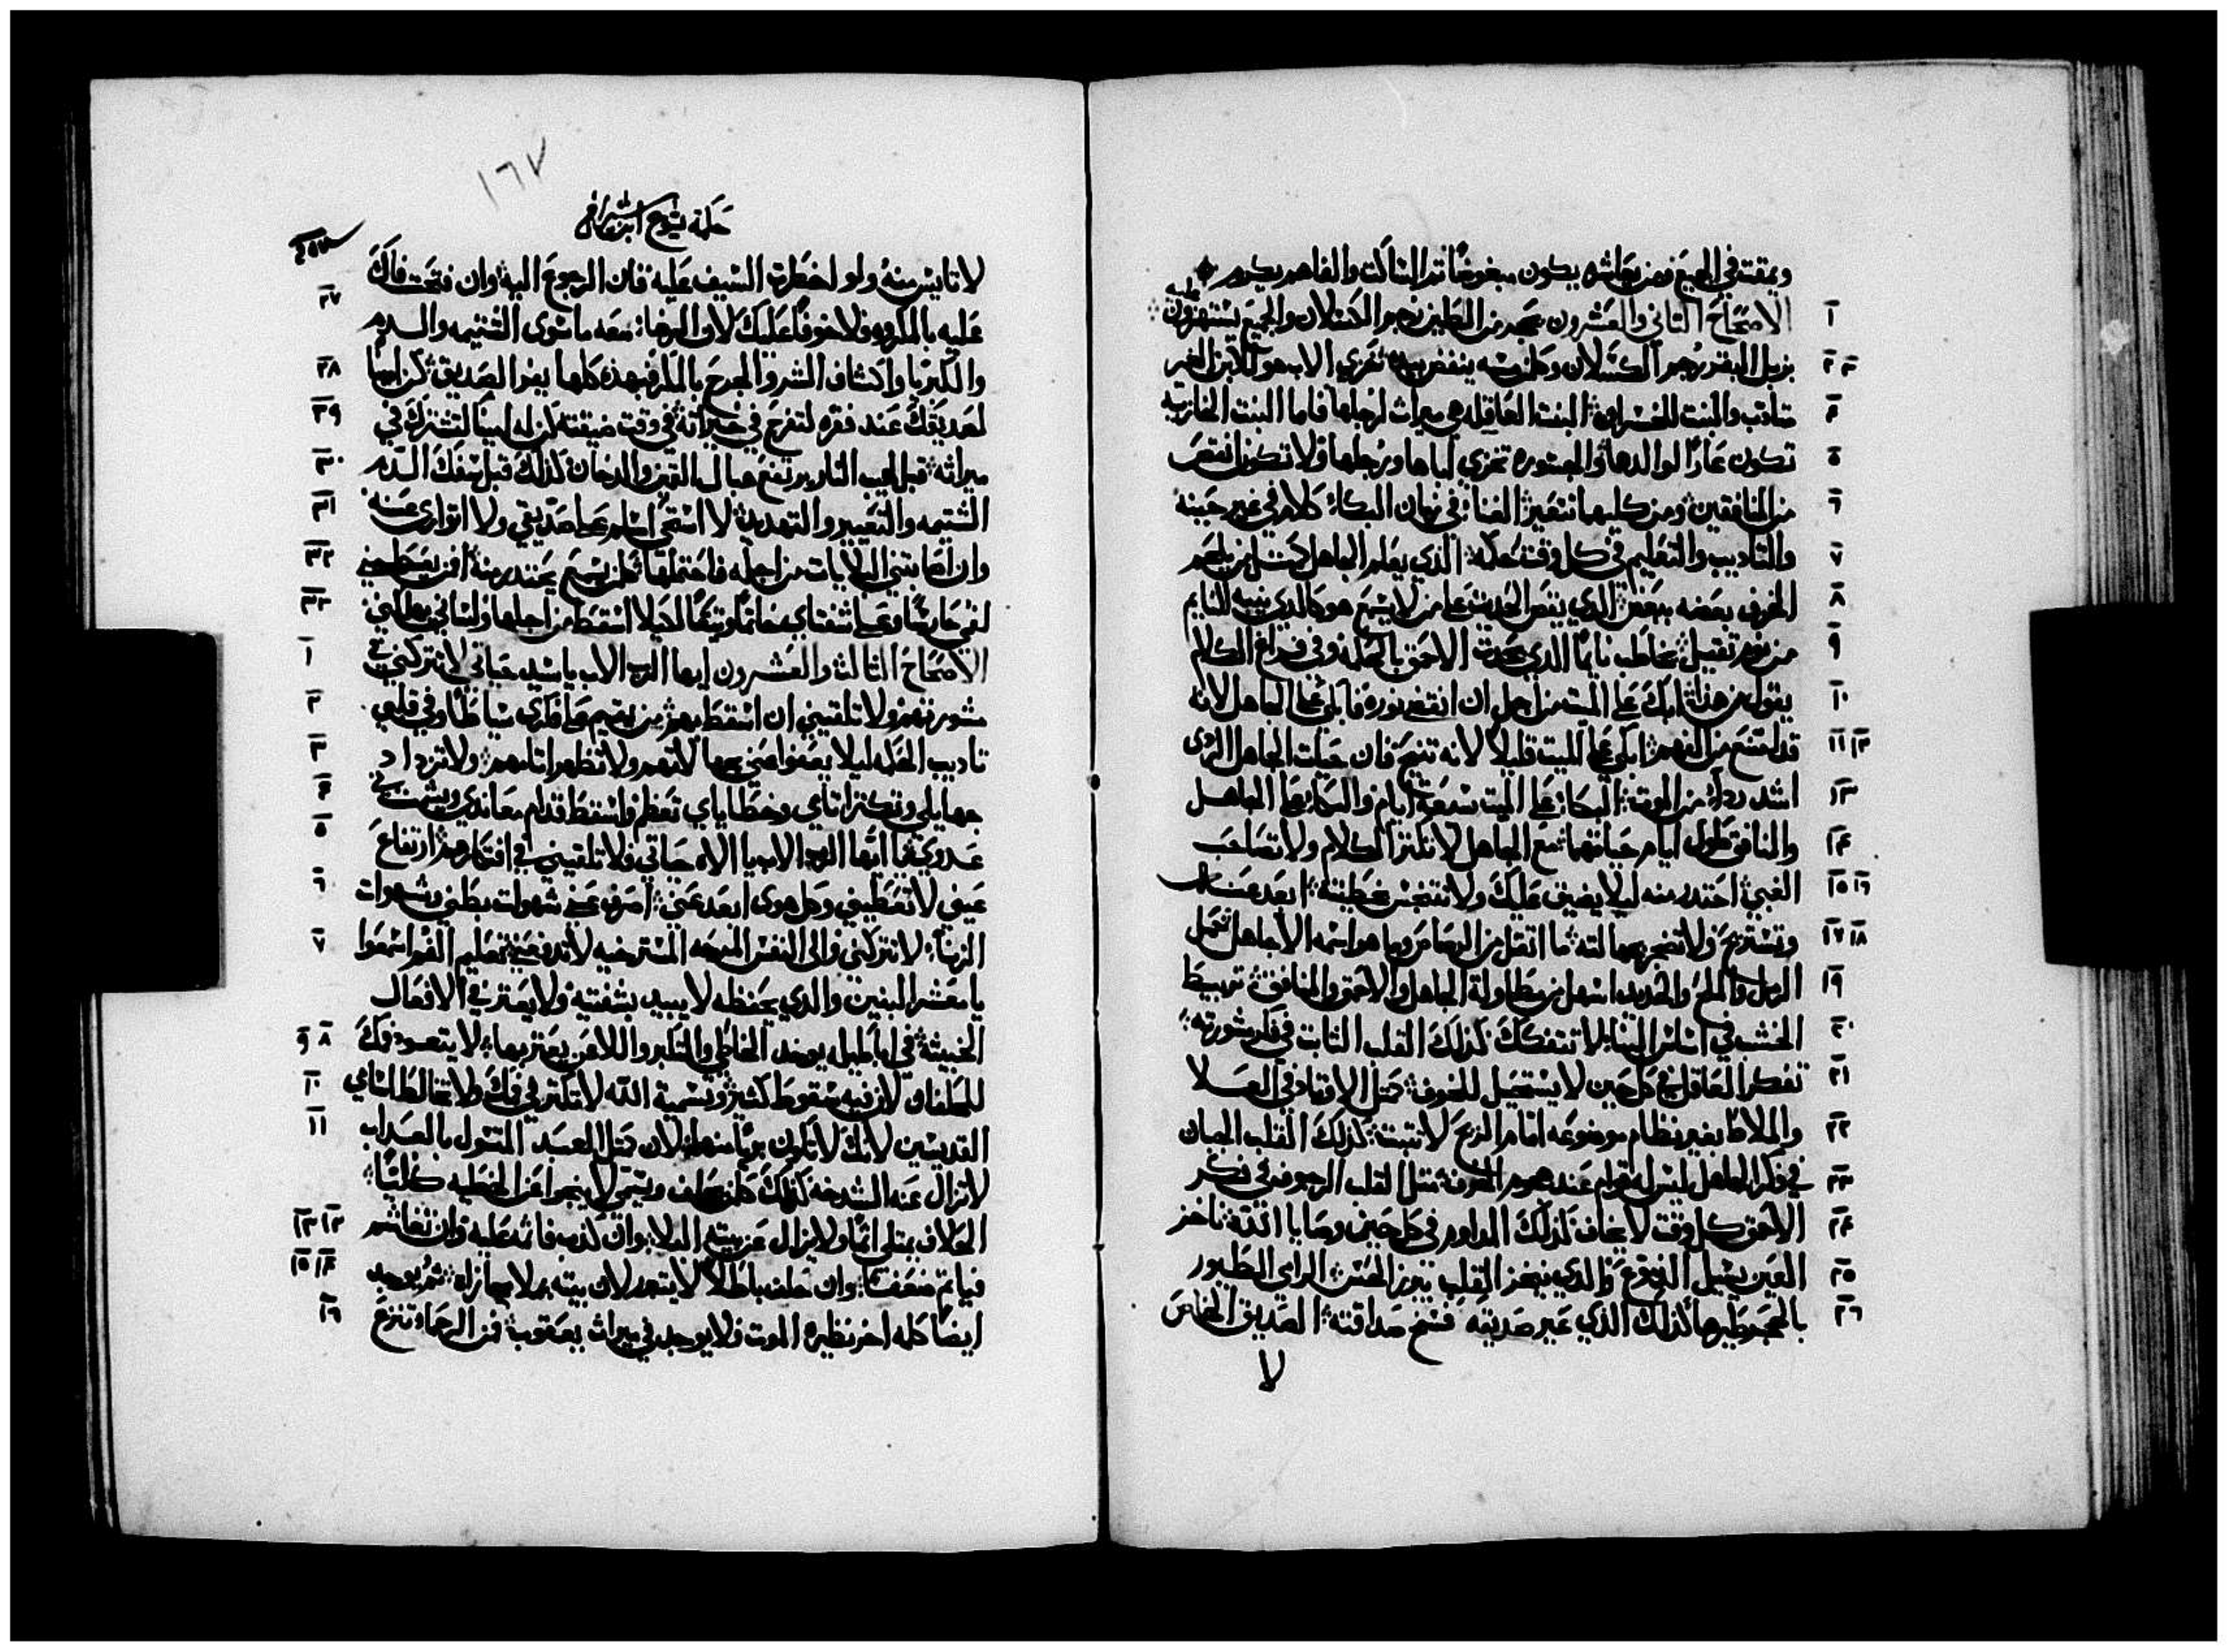 ويمقت في الجميع فمن يعاشره يكون مبغوضًا ثم الساكت والفاهم يكرم
الاصحاح الثاني والعشرون بحجر من الطين رجم الكسلان والجميع يستهزون عليه
١
بزبل البقر رجم الكسلان وكل من يمسه ينفض يديه خزي الاب هو الابن الغير
٢ ٣
متادب والبنت للخسران البنت العاقله هي ميراث لرجلها فاما البنت الخازيه
٤
تكون عارًا لوالدها والجسوره تخزي اباها ورجلها ولا تكون انقص
٥
من المنافقين ومن كليهما تتعير الغنا في زمان البكاء كلام في غير حينه
٦
والتاديب والتعليم في كل وقت حكمه الذي يعلم الجاهل كمثل من يلحم
٧
الخزف بعضه ببعض الذي يقص الحديث على من لا يسمع هو كالذي ينبه النايم
٨
من نوم ثقيل يخاطب نايمًا الذي يحدث الاحمق بالحكمه وفي فراغ الكلام
٩
يقول من هذا ابك على الميت من اجل ان انقضى نوره فابك على الجاهل لانه
١٠
قد امتنع من الفهم ابكي على الميت قليلاً لانه تنيح فان حيات الجاهل الردى
١١ ١٢
اشد رداة من الموت البكا على الميت سبعة ايام والبكا على الجاهل
١٣
والمنافق طول ايام حياتهما مع الجاهل لا تكثر الكلام ولا تصاحب
١٤
الغبي احتذر منه ليلا يضيق عليك ولا تتنجس بخطيته ابعد عنه
١٥ ١٦
وتستريح ولا تضجر بجهالته ما اثقل من الرصاص وما هو اسمه الا جاهل تحمل
١٧ ١٨
الرمل والملح والحديد اسهل من مطاولة الجاهل والاحمق والمنافق تربيط
١٩
الخشب في اساس البنا لا تتفكك كذلك القلب الثابت في فكر مشورته
٢٠
تفكر العاقل في كل حين لا يستحيل للخوف كمثل الاوتاد في العلا
٢١
والملاط بغير نظام موضوعه امام الريح لا تثبت كذلك القلب الجبان
٢٢
في فكر الجاهل ليس له قوام عند هجوم الخوف مثل القلب الرجوف في فكر
٢٣
الاحمق كل وقت لا يخاف كذلك المداوم في كل حين وصايا الله ناخز
٢٤
العين يسيل الدموع والذي ينخز القلب يبرز الحس الرامي الطيور
٢٥
بالحجر يطيرها كذلك الذي عير صديقه فسخ صداقته الصديق الخاص
٢٦
لا
١٦٧
حكمة يشوع ابن شيراخ
لا تايس منه ولو اخطرت السيف عليه فان الرجوع اليه وان فتحت فاك
٢٧
عليه بالمكروه فلا خوفًا عليك لان الرضا معه ما سوى الشتيمه والسدم
والكبريا واكتشاف السر والجرح بالمكر فبهذه كلها يفر الصديق كن امينًا
٢٨
لصديقك عند فقره لتفرح في خيراته في وقت ضيقته كن له امينًا لتشترك في
٢٩
ميراثه قبل لهيب النار يرتفع حبال القمين والدخان كذلك قبل سفك الدم
٣٠
الشتيمه والتعيير والتهديد لا استحي اسلم على صديقي ولا اتوارى عنه
٣١
وان اصابتني البلايات من اجله فاحتملها كل من يسمع يحتذر منه من يعطيني
٣٢
لفمي حارسًا وعلى شفتاي خاتمًا وثيقًا لكيلا اسقط من اجلها ولساني يهلكني
٣٣
الاصحاح الثالث والعشرون ايها الرب الاب يا سيد حياتي لا تتركني في
١
مشورتهم ولا تلقيني ان اسقط بهم من يقيم على فكري سياطًا وفي قلبي
٢
تاديب الحكمه ليلا يعفوا عني بجهالاتهم ولا تظهر اتامهم ولا تزداد
٣
جهايلي وتكثر اتامي وخطاياي تعظم واسقط قدام معاندي ويشمت في
٤
عدوي يا ايها الرب الاب يا الاه حياتي فلا تلقيني في افتكارهم ارتفاع
٥
عيني لا تعطيني وكل هوى ابعد عني اصرف عني شهوات بطني وشهوات
٦
الزنا لا تتركني والى النفس المسترخيه لا تدفعني تعليم الفم اسمعوا
٧
يا معشر البنين والذي يحفظه لا يبيد بشفتيه ولا يعثر في الافعال
الخبيثه في اباطيل يوخد الخاطي والمتكبر واللاعن يعثر بها لا يتعود فمك
٨ ٩
للحلفان لان فيه سقوط كثير وتسمية الله لا تكثر في فمك ولا تخالط اسامي
١٠
القديسين لانك لا تكون بريًا منها لان كمثل العبد المسول بالعداب
١١
لا تزال عنه الشدخه كذلك كل من يحلف ويسمي لا ينجوا من الخطيه كليًا
الحلاف يمتلي اثمًا ولا يزال عن بيته البلا وان كذب فاثمه عليه وان تغاشم
١٢ ١٣
فياثم ضعفًا وان حلف باطلاً لا يتبرر لان بيته يملا جزا ثم يوجد
١٤ ١٥
ايضًا كلمه اخر نظيره الموت فلا يوجد في ميراث يعقوب فمن الرحماء تنزع
١٦